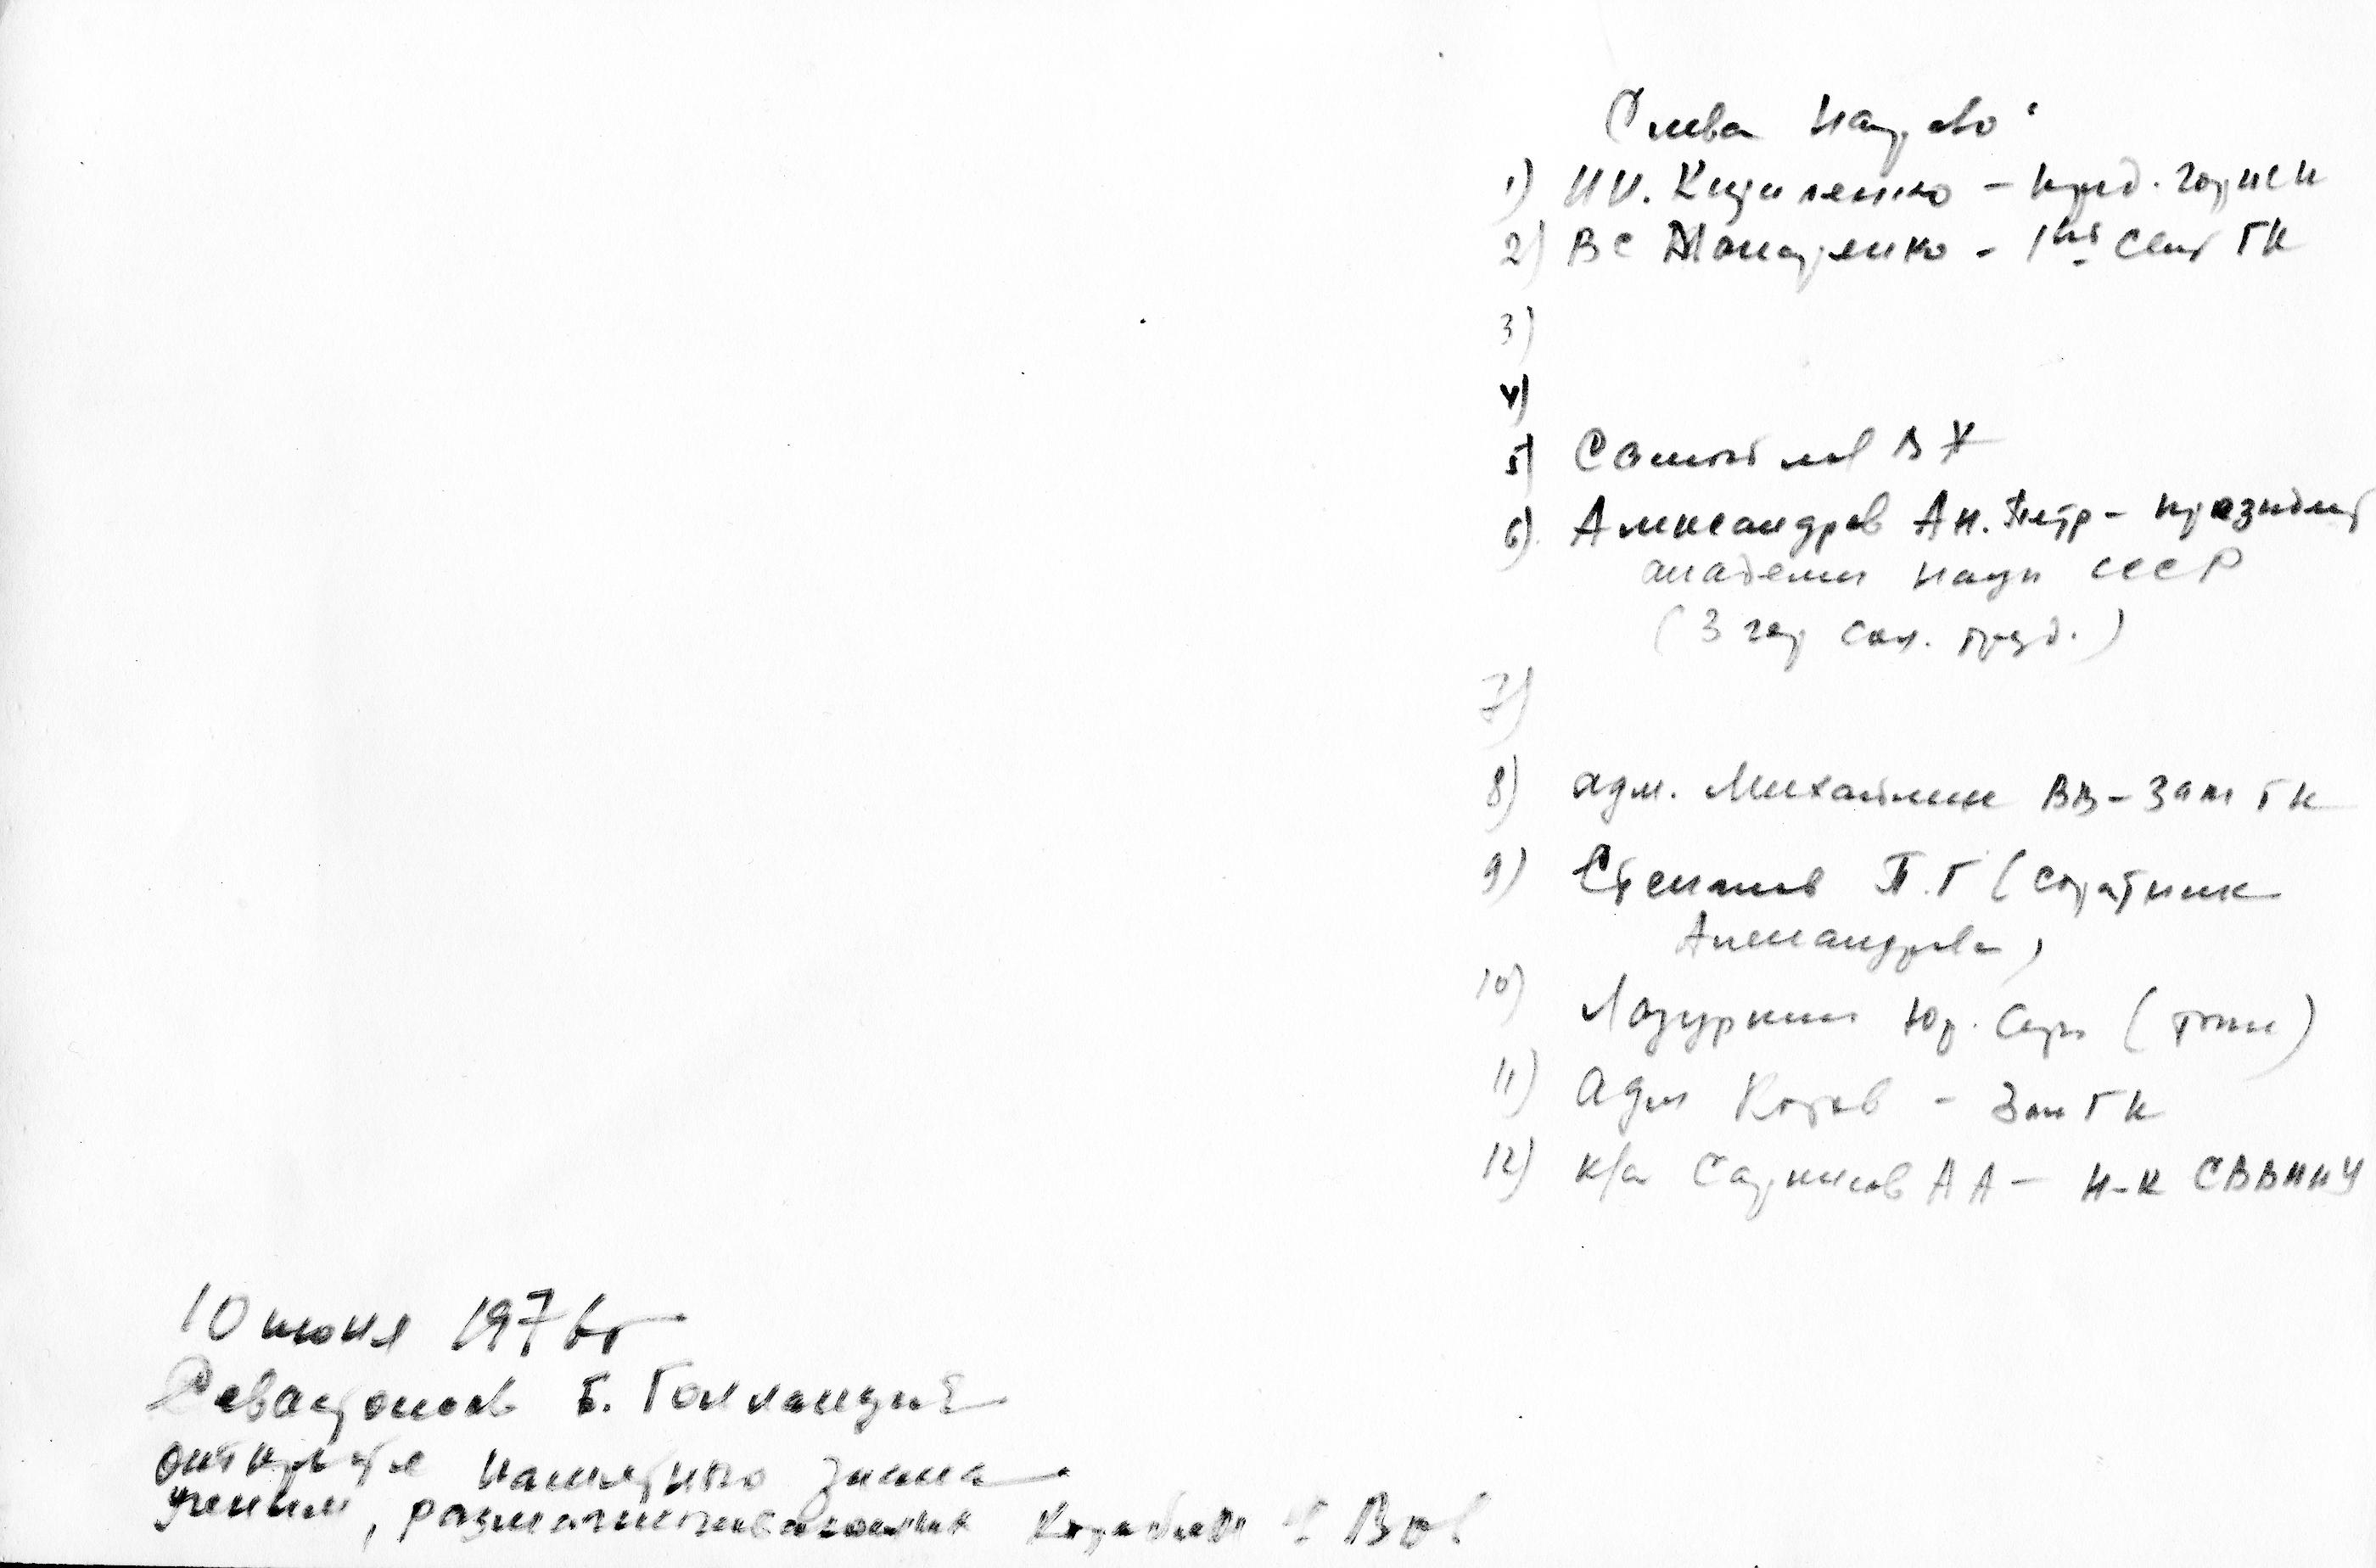 Слева направо:
1) И И. Кириленко – пред. горисп
2) В С Макаренко – 1ый секр ГК
3)
4)
5) Самойлов В Х
6) Александров Ан. Петр – президент
академии наук СССР
(3 гер соц. труд.)
7)
8) адм. Михайлин ВВ – Зам ГК
9) Степанов П. Г (соратник
Александрова)
10) Лазуркин Юр. Серг
11) Адм Котов – Зам ГК
12) к/а Саркисов А А – н-к СВВМИУ
10 июня 1976г
Севастополь б. Голландия
открытие памятного знака
ученым, размагничивавшим корабли в ВОВ